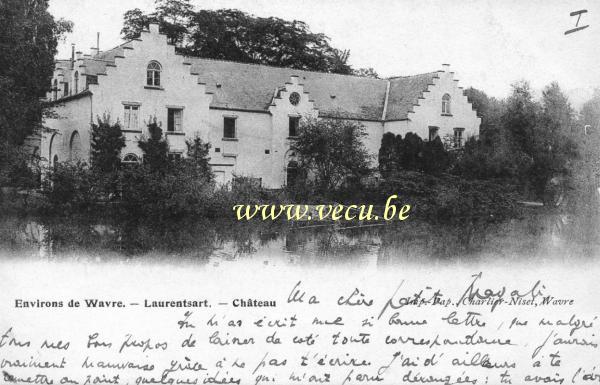 I
www.vecu.be
Environs de Wavre. — Laurentsart. — Château
Imp.-Pap. Charlier-Niset, Wavre
Ma chère petite Magali
Tu m'as écrit une si bonne lettre, que malgré
tous mes bons propos de laisser de coté toute correspondance, j'aurais
vraiment mauvaise grâce à ne pas t'écrire. J'ai d'ailleurs à te
remettre au point, quelques idées qui m'ont paru dérangées, tu avais l'air